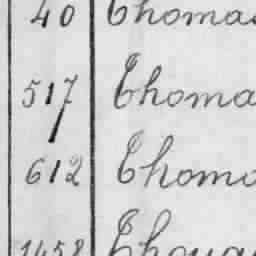 40 Thomas
517 Thoma
612 Thoma
1458 Thouar